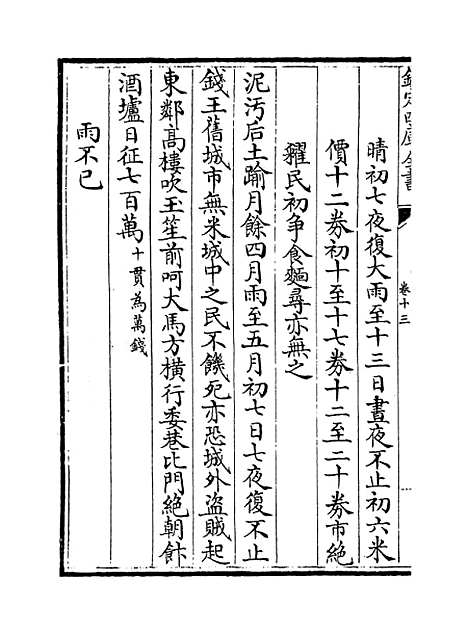 欽定四庫全書
卷十三
晴初七夜復大雨至十三日晝夜不止初六米
價十二券初十至十七券十二至二十券市絶
糴民初争食麵尋亦無之
泥汚后土踰月餘四月雨至五月初七日七夜復不止
錢王舊城市無米城中之民不饑死亦恐城外盜賊起
東鄰髙樓吹玉笙前呵大馬方横行委巷比門絶朝飰
酒壚日征七百萬十貫為萬錢
雨不已